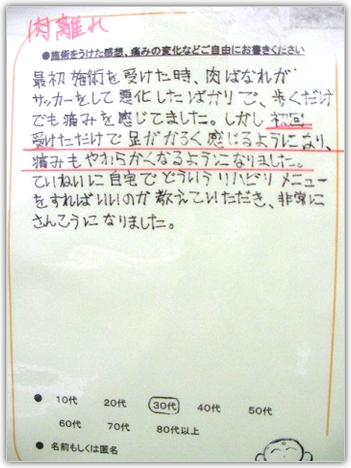 肉離れ
●施術をうけた感想、痛みの変化などご自由にお書きください
最初 施術を受けた時、肉ばなれが
サッカーをして悪化したばかりで、歩くだけ
でも痛みを感じてました。しかし初回
受けただけで足がかるく感じるようになり、
痛みもやわらかくなるようになりました。
ていねいに自宅でどういうリハビリメニュー
をすればいいのか教えていただき、非常に
さんこうになりました。
● 10代 20代 30代 40代 50代
60代 70代 80代以上
● 名前もしくは匿名